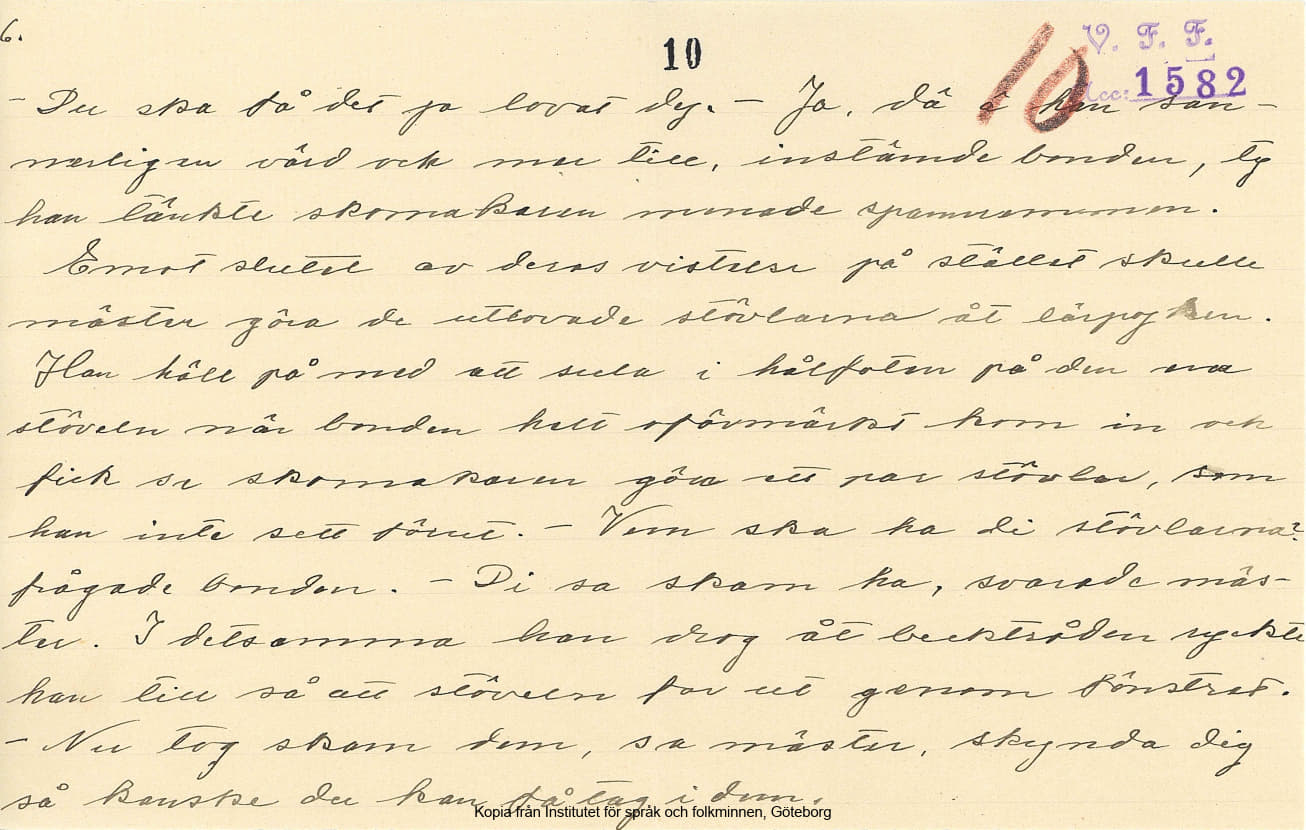 6.
10
10
V. F. F.
Acc: 1582
- Du ska få det ja lovat dej. - Ja, dä ä han san-
nerligen värd och mer till, instämde bonden, ty
han tänkte skomakaren menade spannremmen.
Emot slutet av deras vistelse på stället skulle
mäster göra de utlovade stövlarna åt lärpojken.
Han höll på med att sula i hålfoten på den ena
stöveln när bonden helt oförmärkt kom in och
fick se skomakaren göra ett par stövlar, som
han inte sett förut. - Vem ska ha di stövlarna?
frågade bonden. - Di sa skam ha, svarade mäs-
ter. I detsamma han drog åt becktråden ryckte
han till så att stöveln for ut genom fönstret.
- Nu tog skam dem, sa mäster, skynda dig
så kanske du kan få tag i dem.
Kopia från Institutet för språk och folkminnen, Göteborg